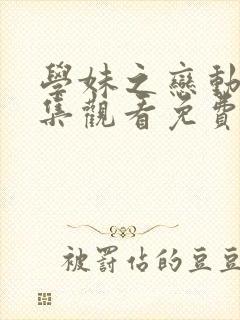 學妹之戀動
集觀看免費
被罰佔的豆豆